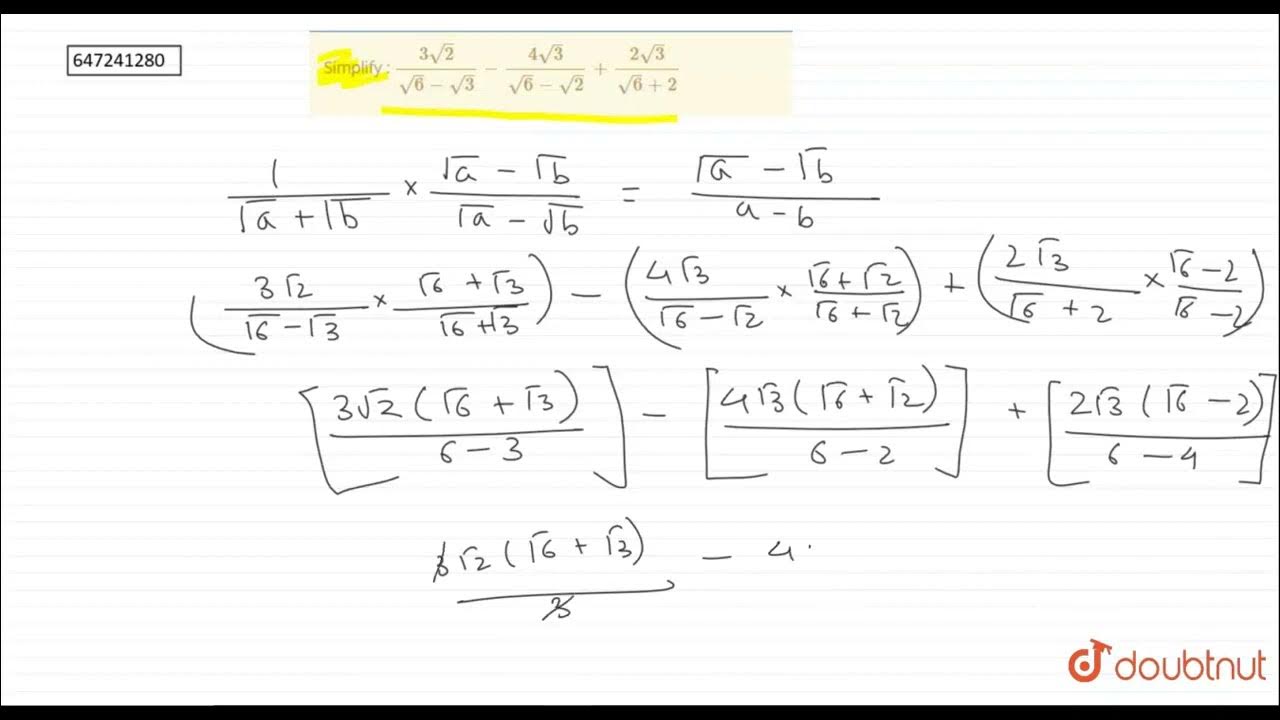 647241280
Simplify : 3√2/(√6 − √3) − 4√3/(√6 − √2) + 2√3/(√6 + 2)
1/(√a + √b) × (√a − √b)/(√a − √b) = (√a − √b)/(a − b)
(3√2/(√6 − √3) × (√6 + √3)/(√6 + √3)) − (4√3/(√6 − √2) × (√6 + √2)/(√6 + √2)) + (2√3/(√6 + 2) × (√6 − 2)/(√6 − 2))
[3√2(√6 + √3)/(6 − 3)] − [4√3(√6 + √2)/(6 − 2)] + [2√3(√6 − 2)/(6 − 4)]
3√2(√6 + √3)/3 − 4
doubtnut